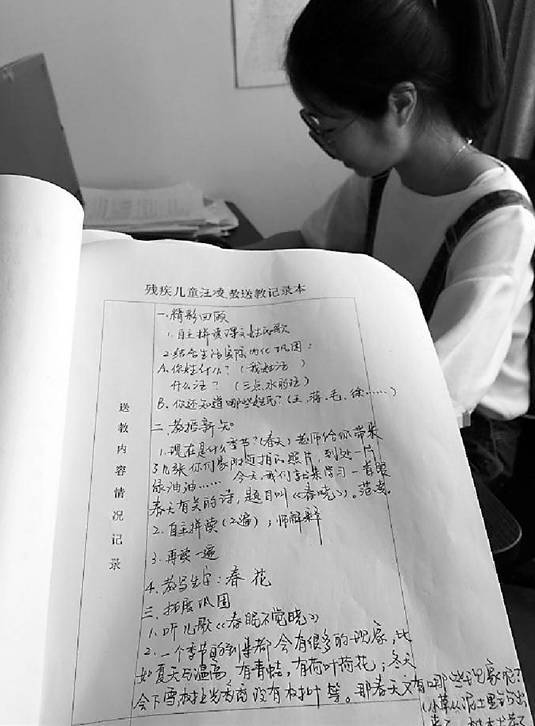 残疾儿童汪凌敖送教记录本
送教内容情况记录
一.精彩回顾
1.自主拼读课文姓氏歌
2.结合生活实际内化巩固:
A.你姓什么?(我姓汪)
什么汪?(三点水的汪)
B.你还知道哪些姓氏?(王、蒋、毛、徐……)
二.教授新知
1.现在是什么季节?(春天)老师给你带来
了几张你们家附近拍的照片,到处一片
绿油油……今天,我们学习一首跟
春天有关的诗,题目叫《春晓》。范读。
2.自主拼读(2遍);师解释
3.再读一遍
4.教写生字:春 花
三.拓展巩固
1.听儿歌《春眠不觉晓》
2.一个季节的到来都会有很多的现象,比
如夏天天气,有青蛙,有荷叶荷花;冬天
会下雪树上光秃秃没有树叶等。那春天又有哪些现象呢?
(小草从泥土里钻出